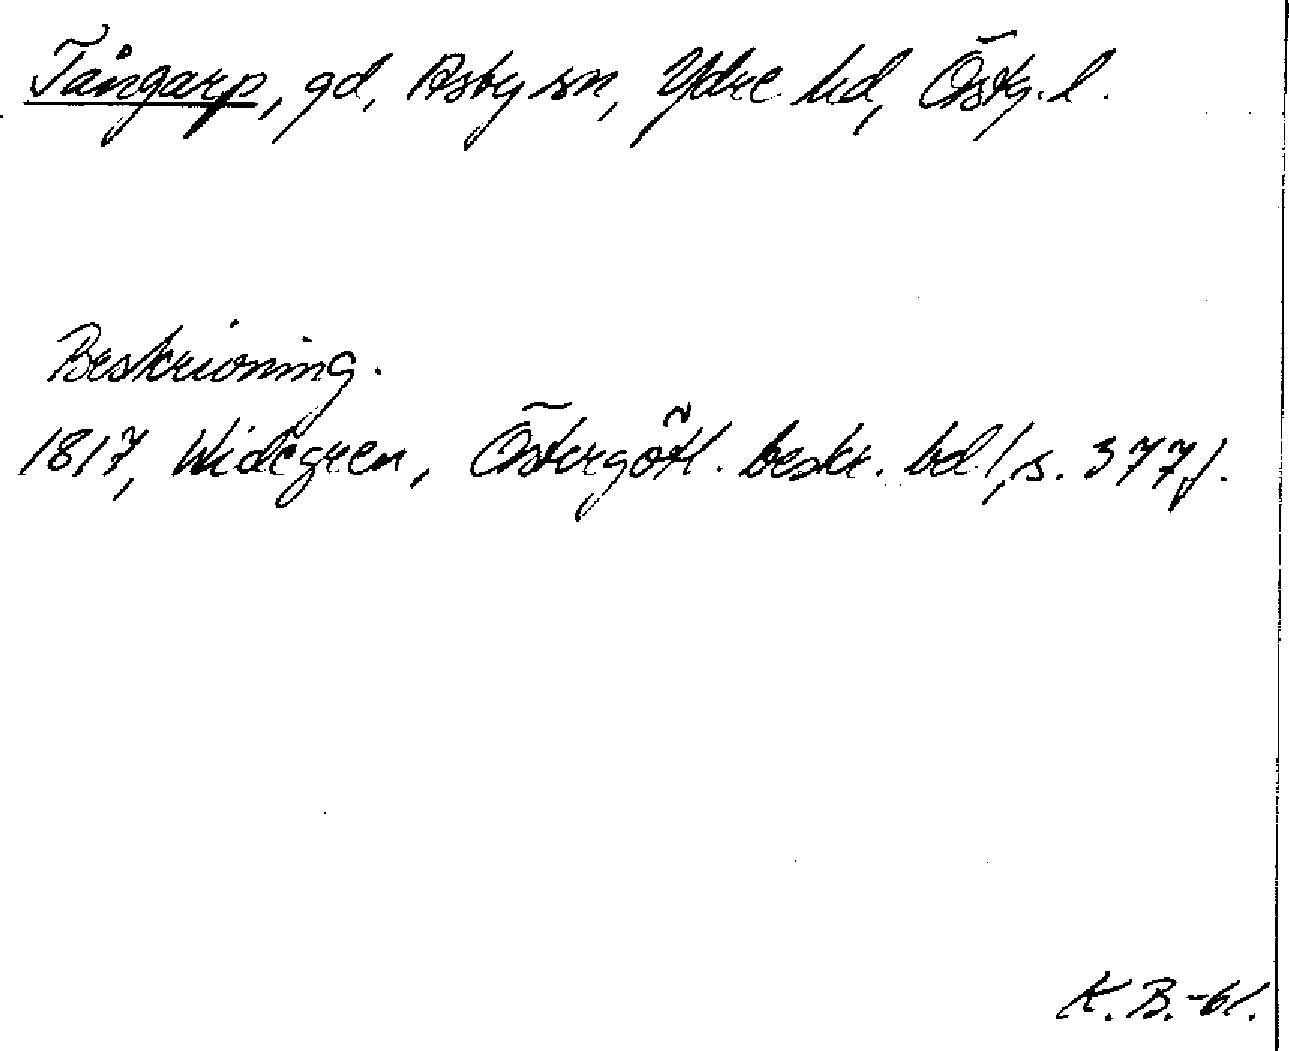 Tångarp, gd, Asby sn, Ydre hd, Östg. l.
Beskrivning.
1817, Widegren, Östergötl. beskr. bd 1, s. 377 f.
K. B. -61.